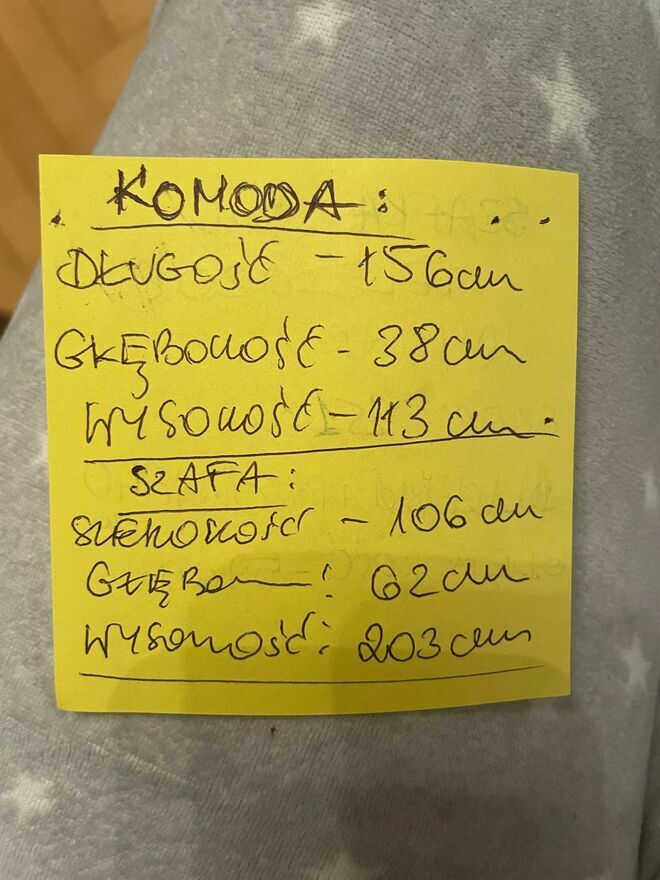 KOMODA:
DŁUGOŚĆ - 156cm
GŁĘBOKOŚĆ - 38cm
WYSOKOŚĆ - 113cm.
SZAFA:
SZEROKOŚĆ - 106cm
GŁĘBO : 62cm
WYSOKOŚĆ: 203cm